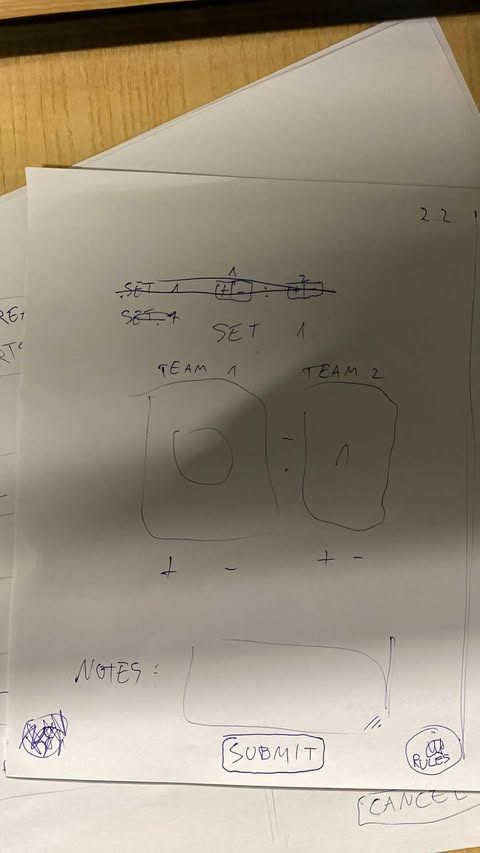 2 2
1 2
SET 1 + - : + -
SET 1
SET 1
TEAM 1 TEAM 2
0 : 1
+ - + -
NOTES:
SUBMIT
RULES
CANCEL